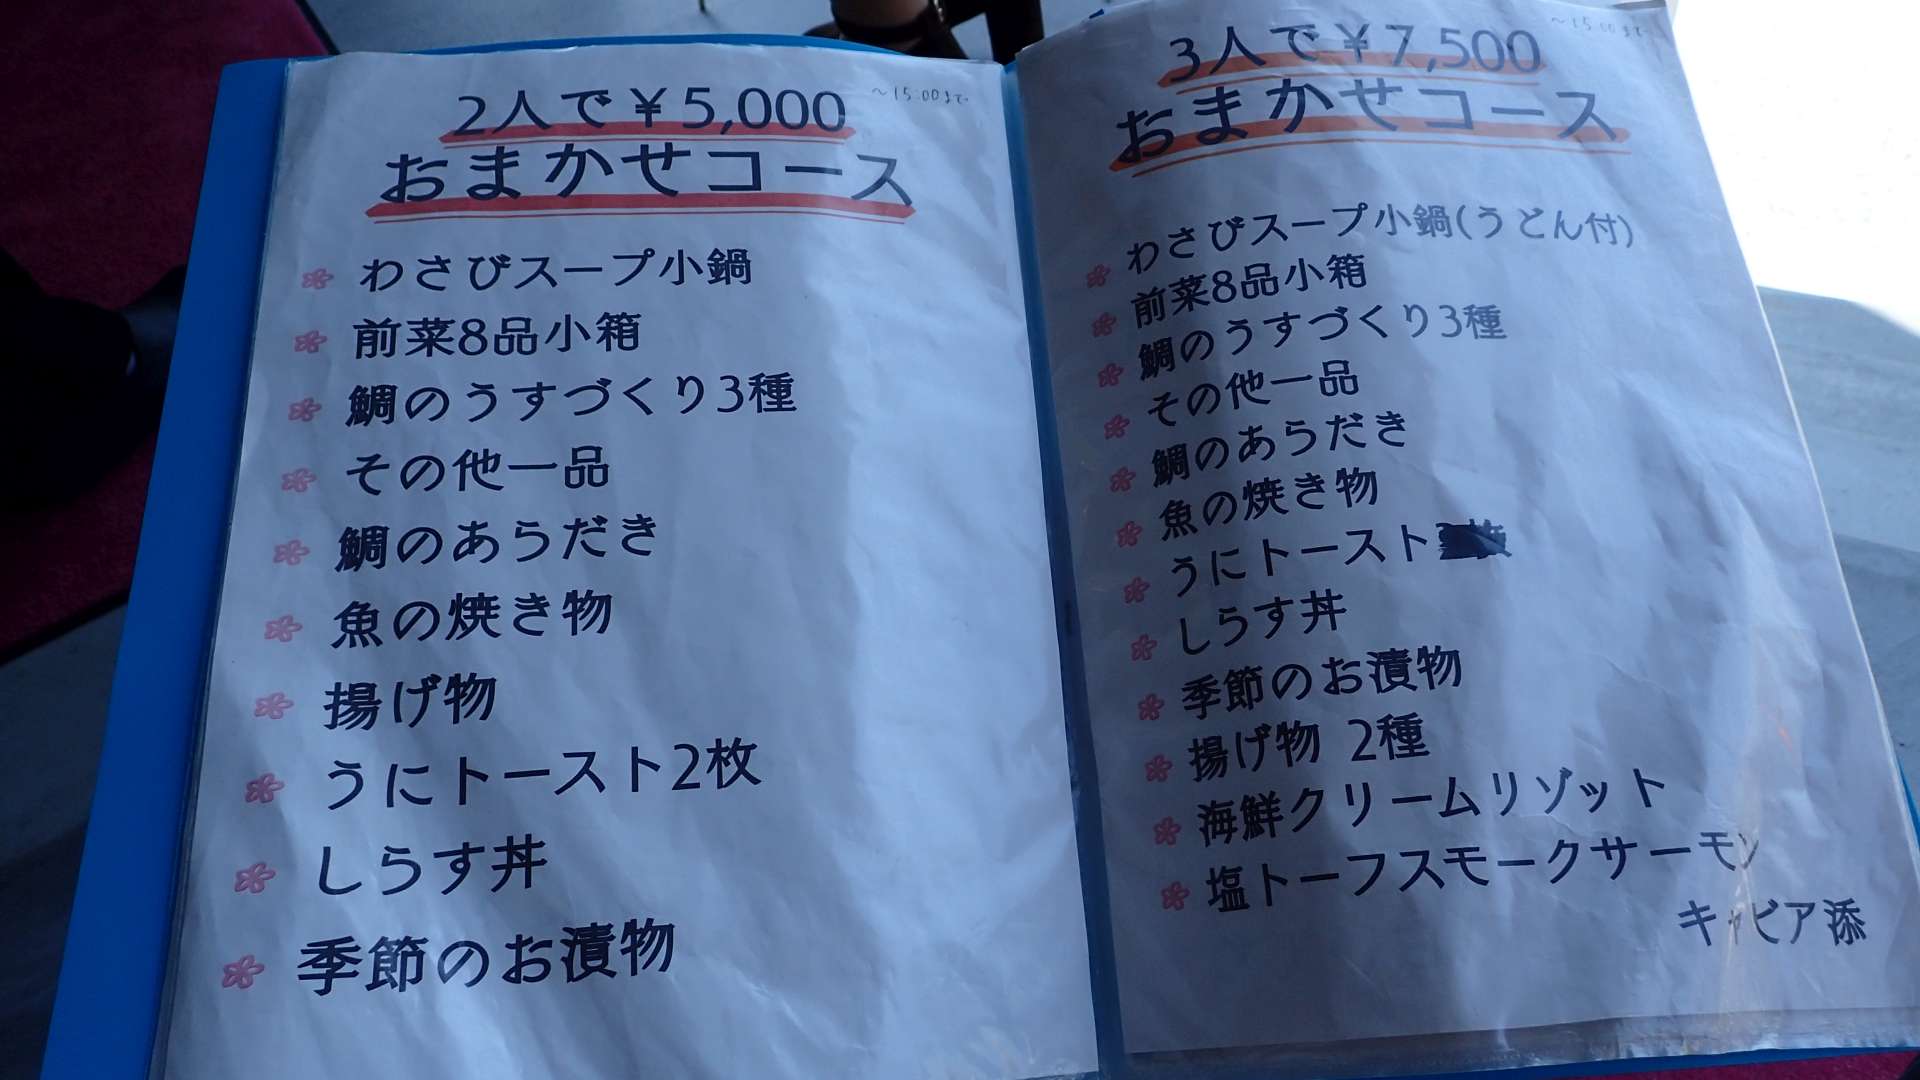 2人で￥5,000
～15:00まで
おまかせコース
わさびスープ小鍋
前菜8品小箱
鯛のうすづくり3種
その他一品
鯛のあらだき
魚の焼き物
揚げ物
うにトースト2枚
しらす丼
季節のお漬物
3人で￥7,500
～15:00まで
おまかせコース
わさびスープ小鍋(うどん付)
前菜8品小箱
鯛のうすづくり3種
その他一品
鯛のあらだき
魚の焼き物
うにトースト
しらす丼
季節のお漬物
揚げ物 2種
海鮮クリームリゾット
塩トーフスモークサーモン
キャビア添